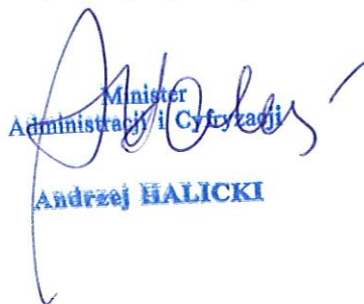 Minister
Administracji i Cyfryzacji
Andrzej HALICKI